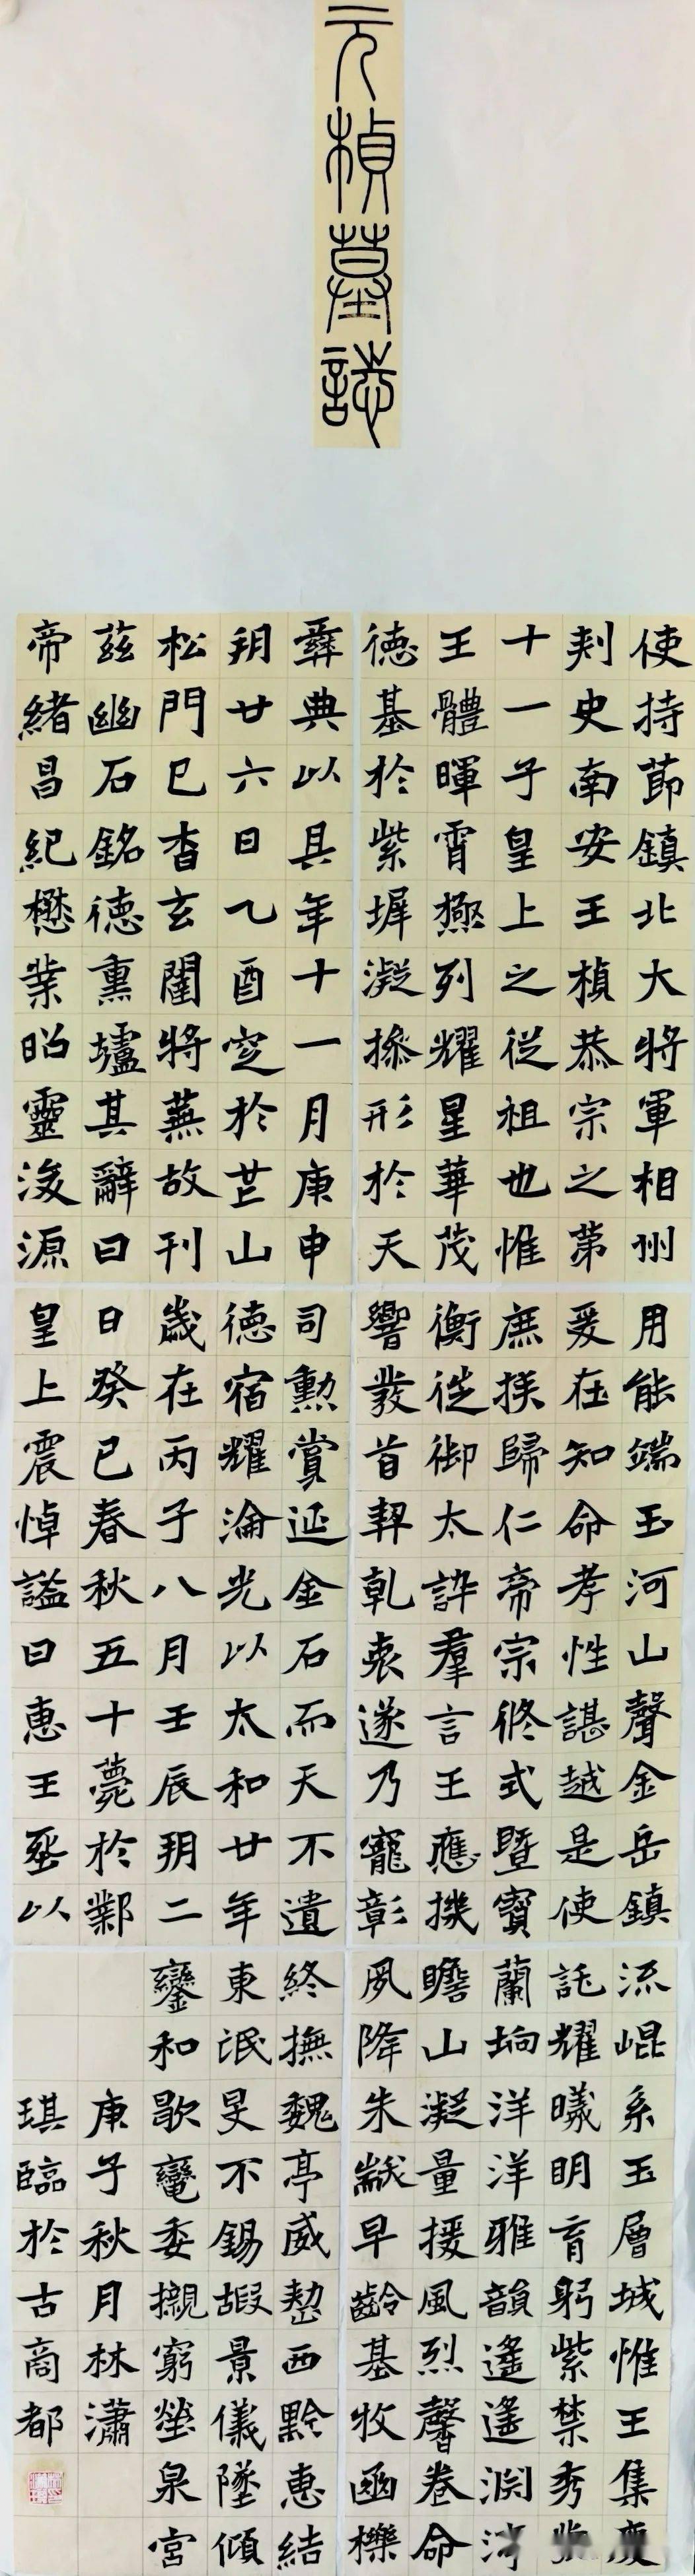 元楨墓誌
使持節鎮北大將軍相州
刾史南安王楨恭宗之第
十一子皇上之從祖也惟
王體暉霄極列耀星華茂
德基於紫墀凝操形於天
用能端玉河山聲金岳鎮
爰在知命孝性諶越是使
庶族歸仁帝宗攸式暨寶
衡從御太訏羣言王應機
響發首契乹衷遂乃寵彰
司勳賞延金石而天不遺
德宿耀淪光以太和廿年
歲在丙子八月壬辰朔二
日癸巳春秋五十薨於鄴
皇上震悼謚曰惠王塟以
彝典以其年十一月庚申
朔廿六日乙酉窆於芒山
松門已杳玄闥將蕪故刊
茲幽石銘德熏壚其辭曰
帝緒昌紀懋業昭靈浚源
流崐系玉層城惟王集慶
託耀曦明育躬紫禁秀
蘭坰洋洋雅韻遙遙渊
瞻山凝量援風烈馨卷命
夙降朱黻早齡基牧函櫟
終撫魏亭威懋西黔惠結
東氓旻不錫嘏景儀墜傾
鑾和歇轡委櫬窮塋泉宮
庚子秋月林瀟
琪臨於古商都